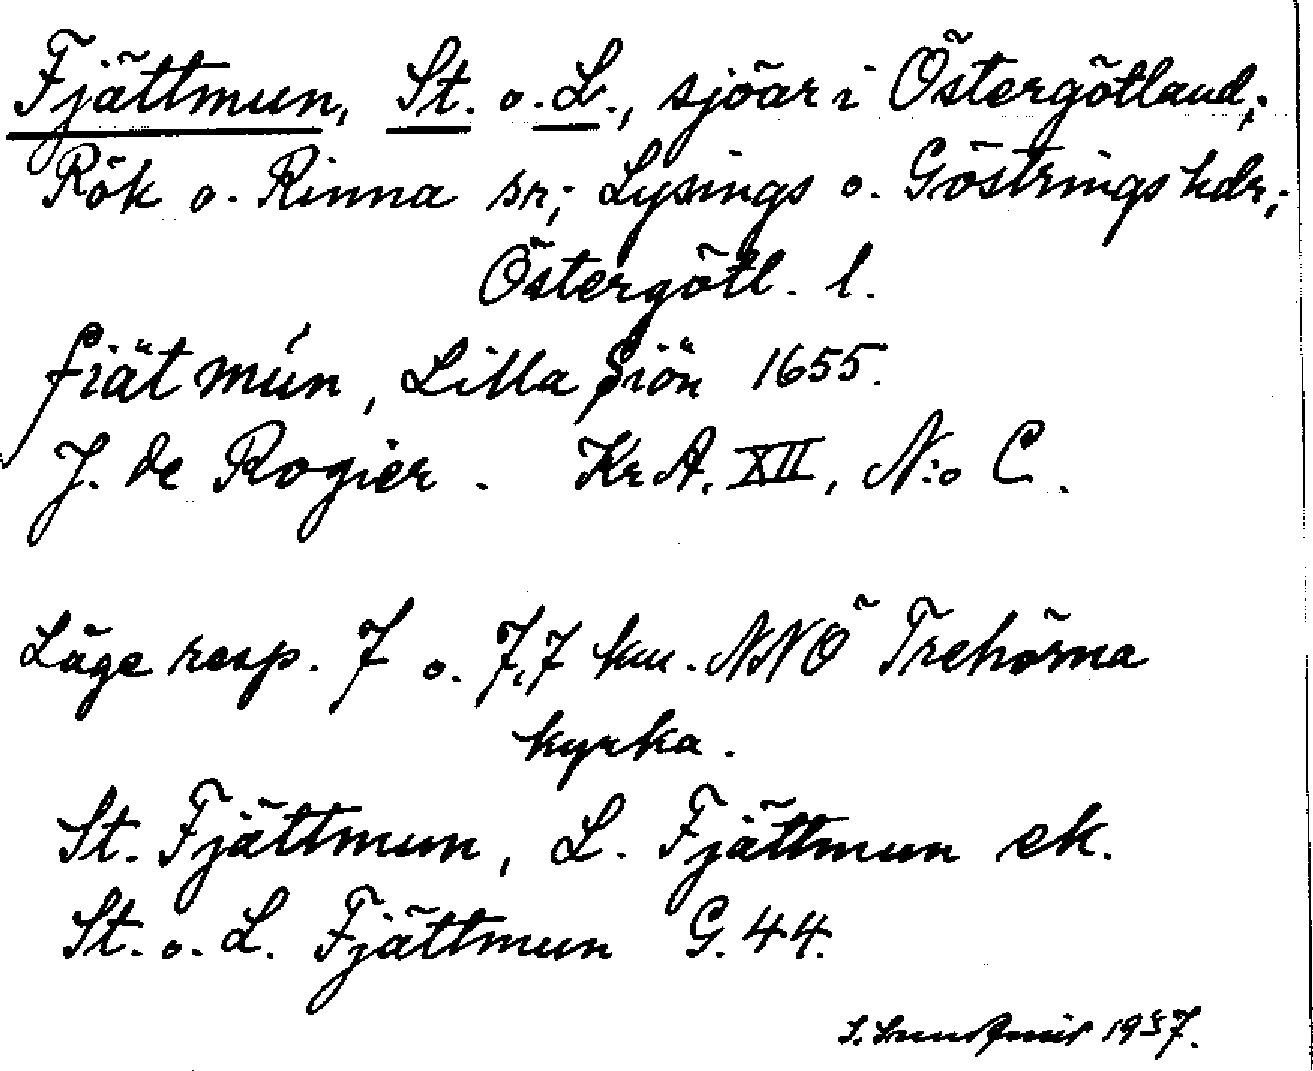 Fjättmun, St. o. L., sjöar i Östergötland;
Rök o. Rinna sn; Lysings o. Göstrings hdr;
Östergötl. l.
fiätmún, Lilla Siön 1655.
J. de Rogier. KrA. XII, N:o C.
Läge resp. 7 o. 7,7 km. NNÖ Trehörna
kyrka.
St. Fjättmun, L. Fjättmun ek.
St. o. L. Fjättmun G. 44.
1937.